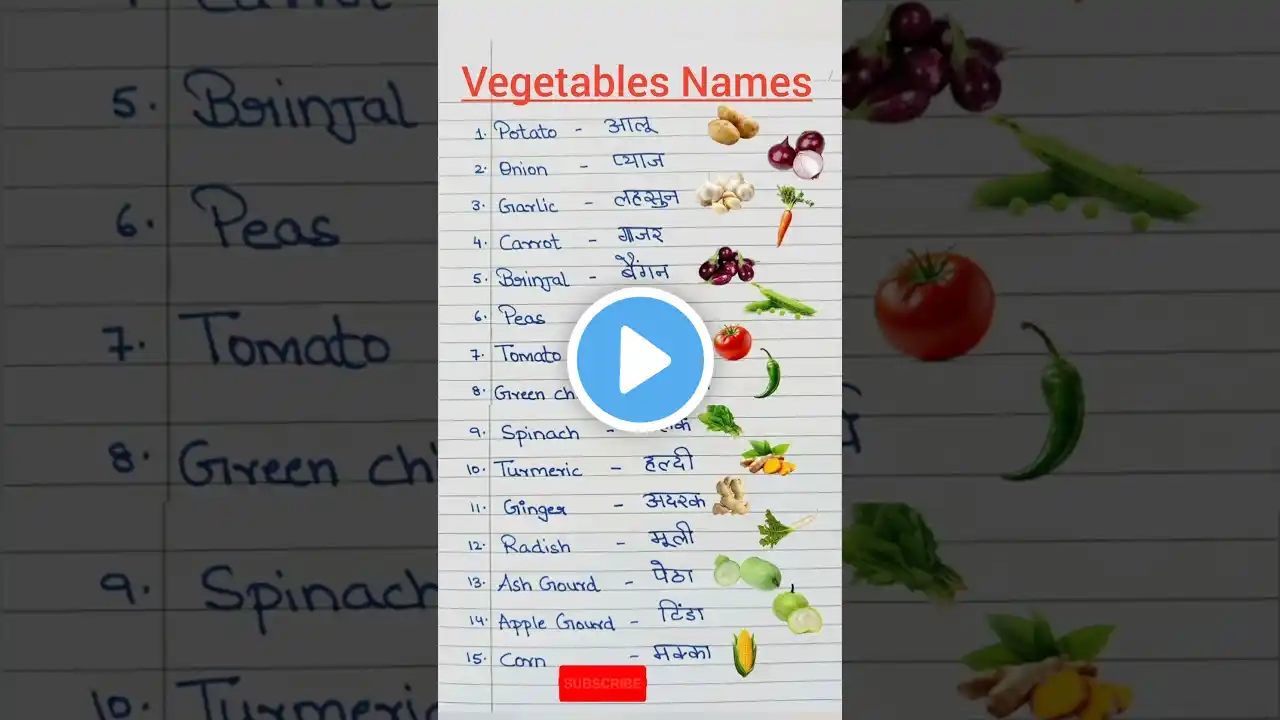 Vegetables Names
1. Potato - आलू
2. Onion - प्याज
3. Garlic - लहसुन
4. Carrot - गाजर
5. Brinjal - बैंगन
6. Peas
7. Tomato
8. Green
9. Spinach -
10. Turmeric - हल्दी
11. Ginger - अदरक
12. Radish - मूली
13. Ash Gourd - पेठा
14. Apple Gourd - टिंडा
15. Corn - मक्का
SUBSCRIBE
5. Brinjal
6. Peas
7. Tomato
8. Green
9. Spinach
10.